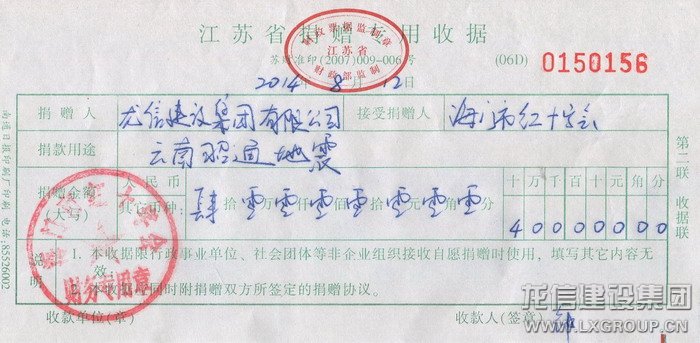 江苏省捐赠专用收据
财政票据监制章
江苏省
财政部监制
苏财准印(2007)009-006号
(06D) 0150156
2014年8月12日
捐赠人 龙信建设集团有限公司 接受捐赠人 海门市红十字会
捐款用途 云南昭通地震
捐赠金额(大写) 人民币 其它币种: 肆拾零万零仟零佰零拾零元零角零分
十万千百十元角分
40000000
说明
1. 本收据限行政事业单位、社会团体等非企业组织接收自愿捐赠时使用,填写其它内容无
效。
2. 本收据应同时附捐赠双方所签定的捐赠协议。
收款单位(章) 收款人(签章)
财务专用章
第二联 收据
南通日报印刷厂印刷 电话:85526002
龙信建设集团
WWW.LXGROUP.CN